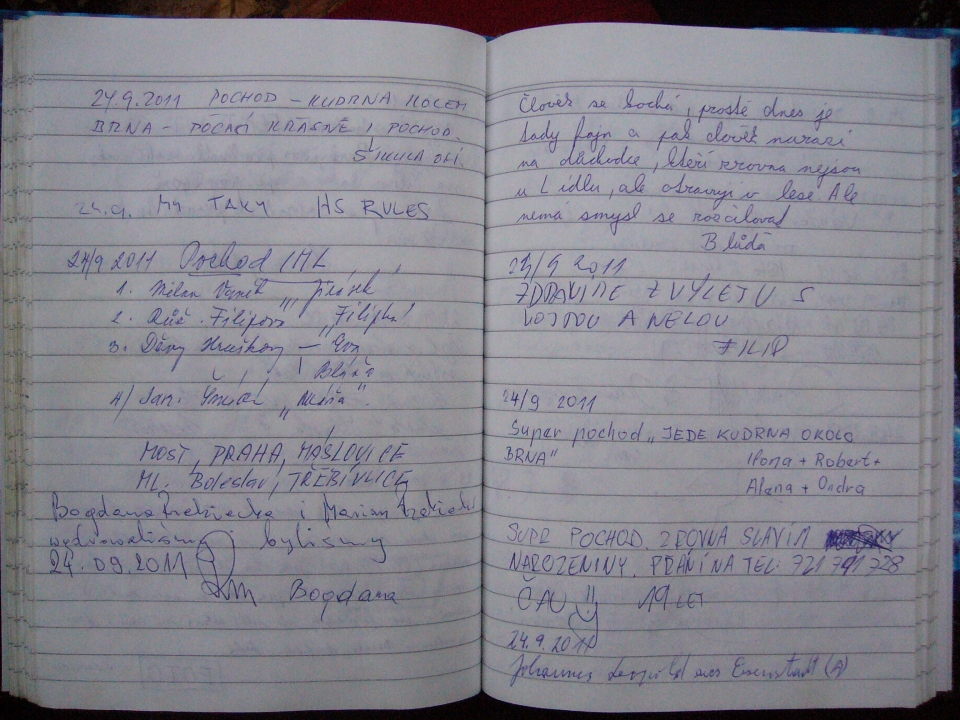 24.9.2011 POCHOD - KUDRNA KOLEM
BRNA - POČASÍ KRÁSNÉ I POCHOD.
ŠIKULA OLÍ
24.9. MY TAKY HS RULES
24/9 2011 Pochod IML
1. Milan Vaněk "Jirásek
2. Růž. Filipová "Filipka"
3. Děvy Hruškovy - Eva
Bláža
4/ Jan.
MOST, PRAHA, MÁSLOVICE
ML. Boleslav, TŘEBÍVLICE
Bogdana i Marian
wędrowaliśmy i byliśmy
24.09.2011
Bogdana
Člověk se kochá, prostě dnes je
tady fajn a pak člověk narazí
na důchodce, kteří zrovna nejsou
u Lidlu, ale otravují v lese Ale
nemá smysl se rozčilovat
Blůďa
24/9 2011
ZDRAVÍME Z VÝLETU S
VOJTOU A NELOU
FILIP
24/9 2011
Super pochod "JEDE KUDRNA OKOLO
BRNA"
Ilona + Robert +
Alena + Ondra
SUPR POCHOD. ZROVNA SLAVÍM
NAROZENINY. PŘÁNÍ NA TEL: 721 791 728
ČAU !! 19 LET
24.9.2011
Johannes Leopold aus Eisenstadt (A)